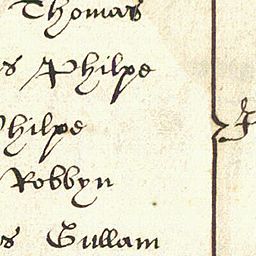 Thomas
s Philpe
Philpe
Robbyn
s Gullam